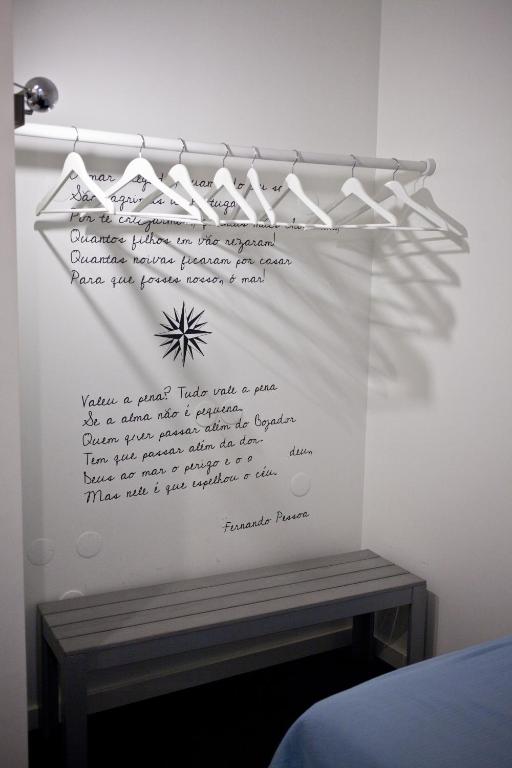 Ó mar
São lágrimas
Por te
Quantos filhos em vão rezaram!
Quantas noivas ficaram por casar
Para que fosses nosso, ó mar!
Valeu a pena? Tudo vale a pena
Se a alma não é pequena.
Quem quer passar além do Bojador
Tem que passar além da dor.
Deus ao mar o perigo e o deu,
Mas nele é que espelhou o céu.
Fernando Pessoa